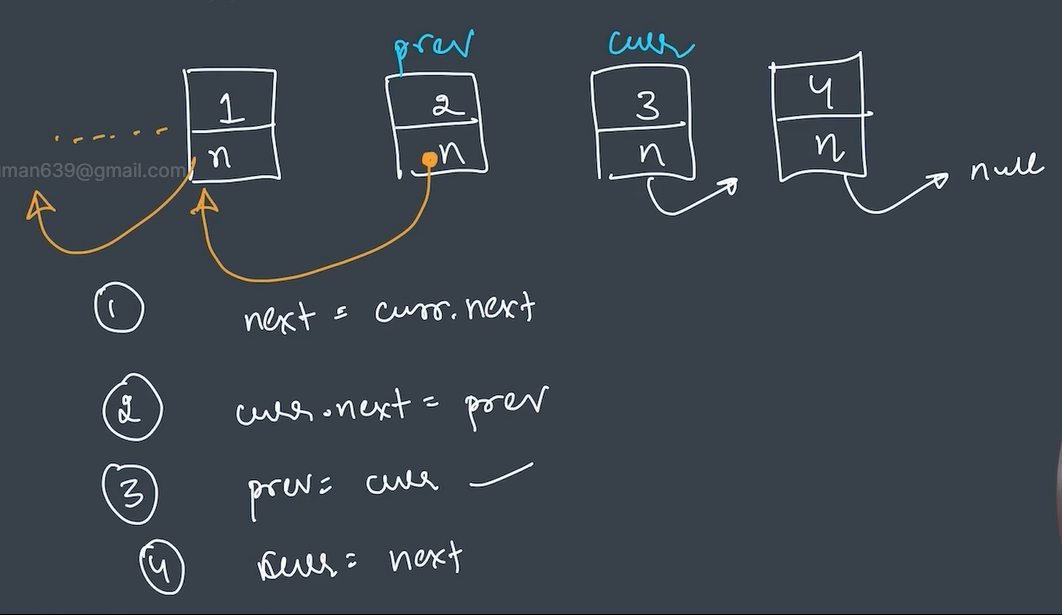 prev curr
1 2 3 4
n n n n
man639@gmail.com
null
1 next = curr.next
2 curr.next = prev
3 prev = curr
4 curr = next